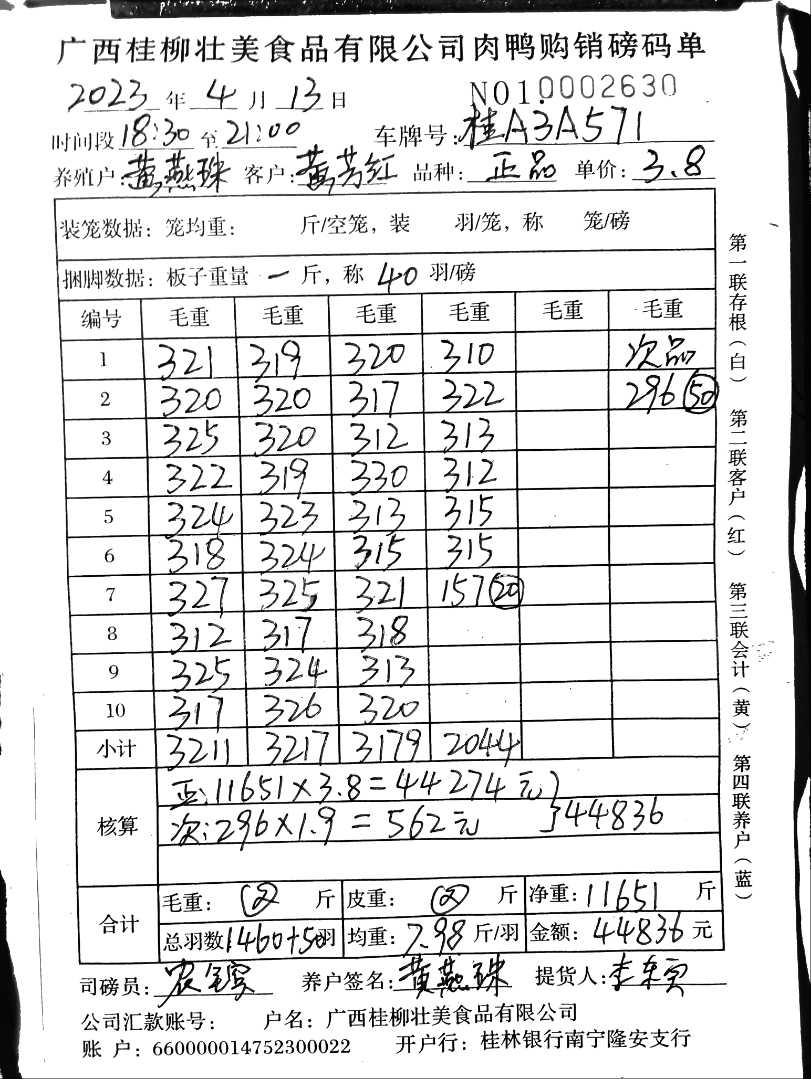 广西桂柳壮美食品有限公司肉鸭购销磅码单
2023 年 4 月 13 日 NO1.0002630
时间段 18:30 至 21:00 车牌号: 桂A3A571
养殖户: 黄燕珠 客户: 黄芳红 品种: 正品 单价: 3.8
装笼数据: 笼均重: 斤/空笼, 装 羽/笼, 称 笼/磅
捆脚数据: 板子重量 一 斤, 称 40 羽/磅
编号 毛重 毛重 毛重 毛重 毛重 毛重
1 321 319 320 310 次品
2 320 320 317 322 296 (50)
3 325 320 312 313
4 322 319 330 312
5 324 323 313 315
6 318 324 315 315
7 327 325 321 157 (20)
8 312 317 318
9 325 324 313
10 317 326 320
小计 3211 3217 3179 2044
核算 正:11651×3.8=44274元
次:296×1.9=562元 }44836
合计 毛重: 斤 皮重: 斤 净重: 11651 斤
总羽数 1460+50羽 均重: 7.98 斤/羽 金额: 44836 元
司磅员: 养户签名: 黄燕珠 提货人:
公司汇款账号: 户名: 广西桂柳壮美食品有限公司
账 户: 660000014752300022 开户行: 桂林银行南宁隆安支行
第一联存根(白) 第二联客户(红) 第三联会计(黄) 第四联养户(蓝)